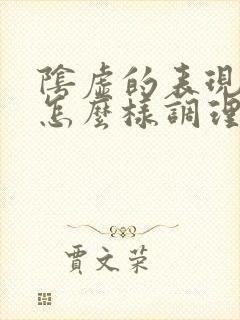 陰虛的表現
怎麼樣調理
賈文荣